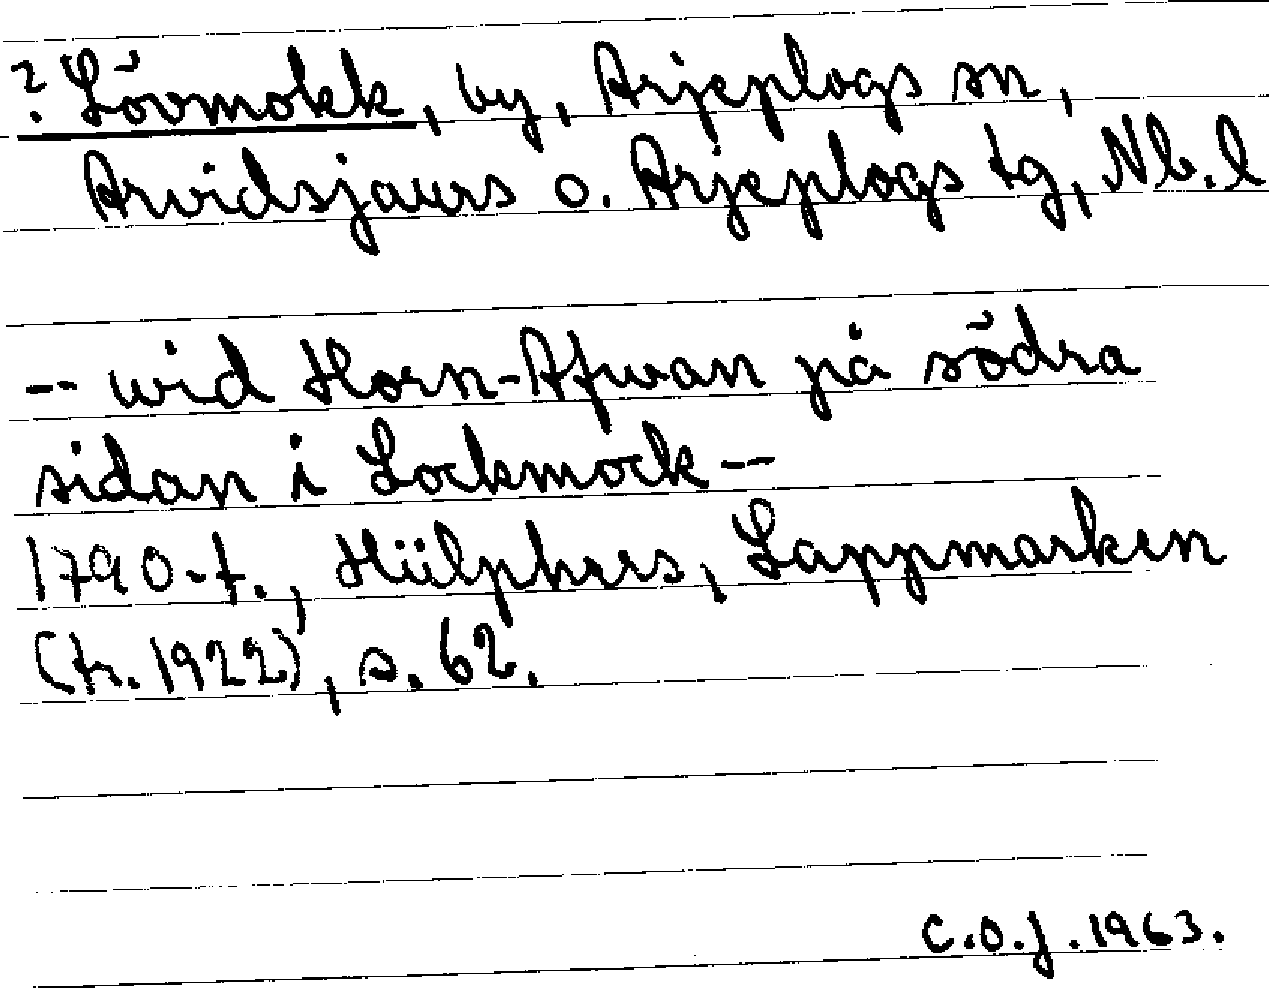 ? Lövmokk, by, Arjeplogs sn,
Arvidsjaurs o. Arjeplogs tg, Nb.l
-- wid Horn-Afwan på södra
sidan i Lockmock --
1790-t., Hülphers, Lappmarken
(tr. 1922), s. 62.
C.O.J. 1963.